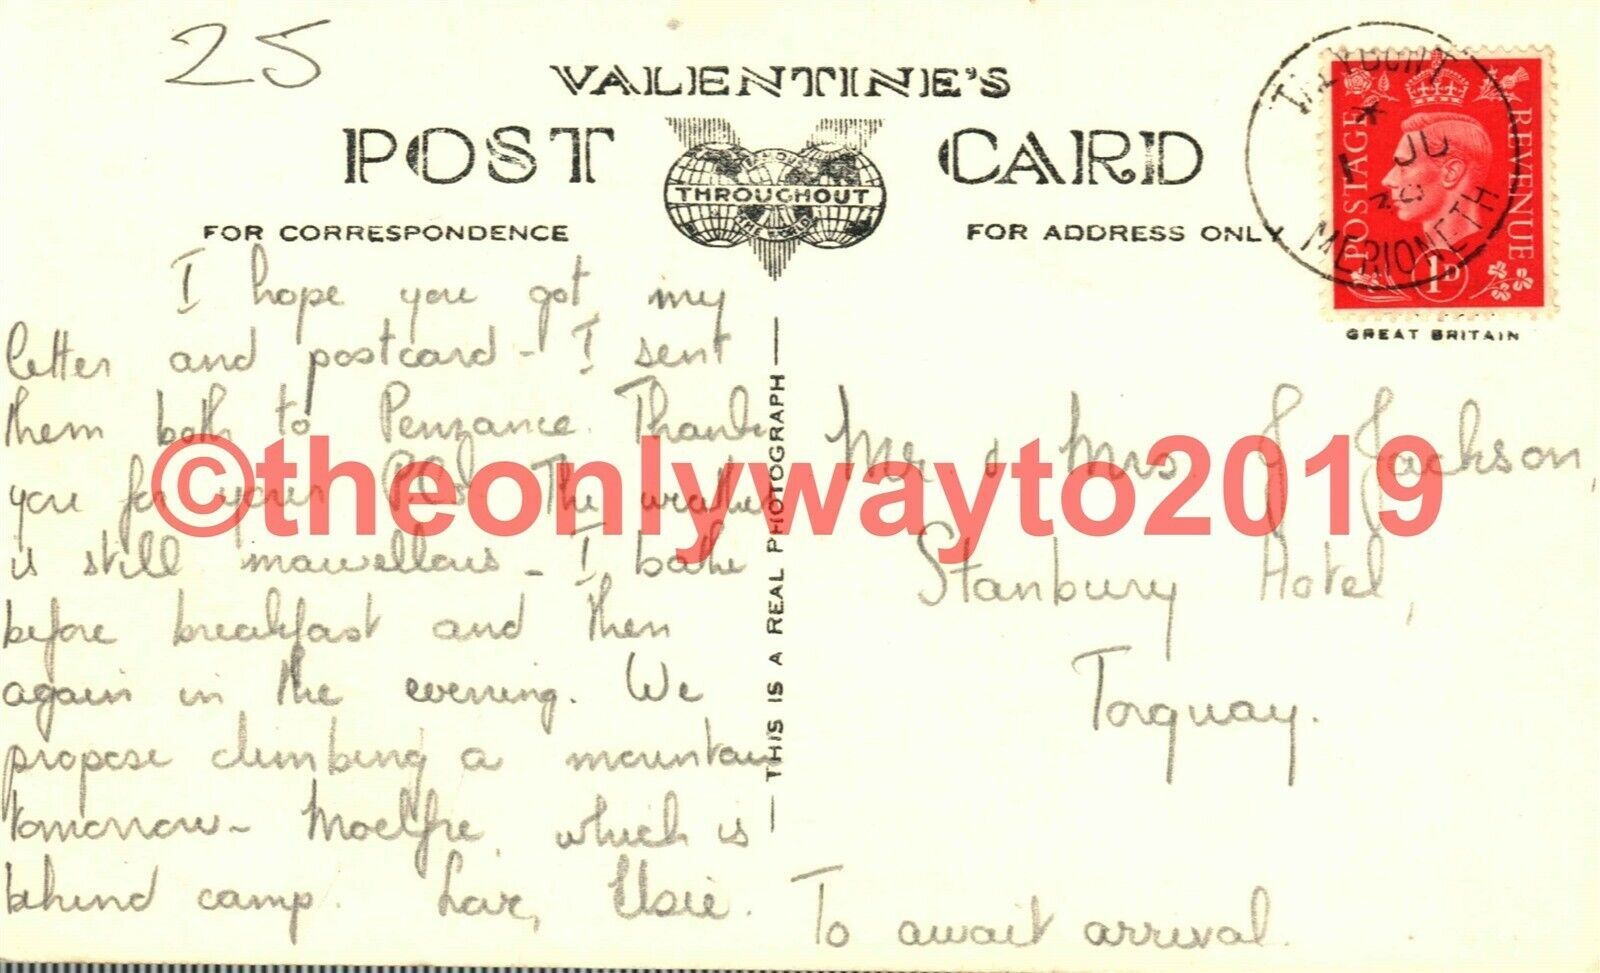 25
VALENTINE'S
POST CARD
THROUGHOUT
THE WORLD
FOR CORRESPONDENCE
FOR ADDRESS ONLY
TALYBONT
* 
1 JU
39
MERIONETH
POSTAGE
REVENUE
1D
GREAT BRITAIN
I hope you got my
letter and postcard - I sent
them both to Penzance. Thank
you for your P.C. The weather
is still marvellous - I bathe
before breakfast and then
again in the evening. We
propose climbing a mountain
tomorrow - Moelfre, which is
behind camp. Love, Elsie.
THIS IS A REAL PHOTOGRAPH
Mr & Mrs J Jackson,
Stanbury Hotel,
Torquay.
To await arrival.
©theonlywayto2019